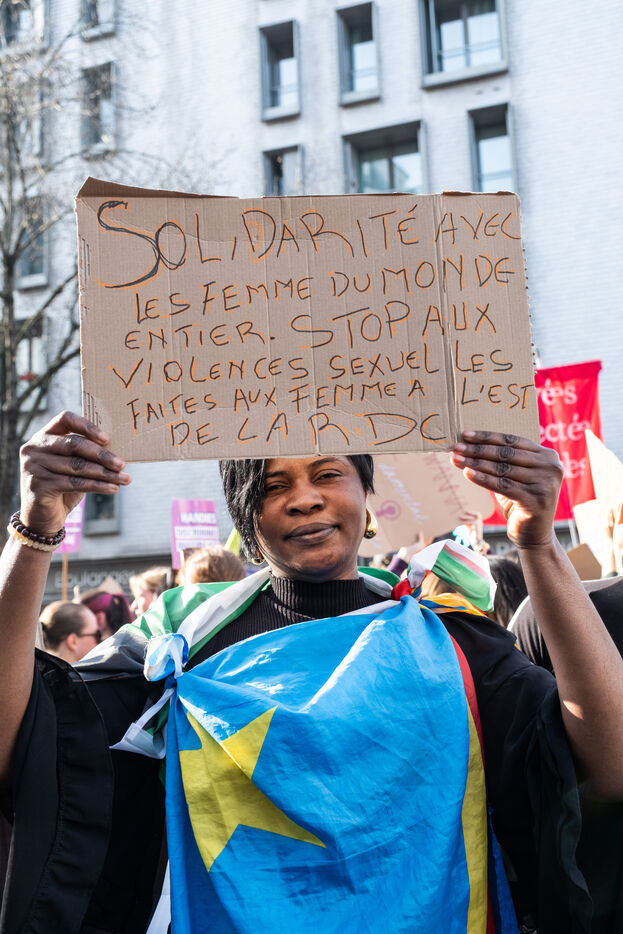 SOLIDARITÉ AVEC
LES FEMME DU MONDE
ENTIER. STOP AUX
VIOLENCES SEXUEL LES
FAITES AUX FEMME A L'EST
DE LA R.DC